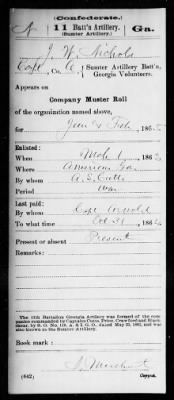 (Confederate.)
N 11 Batt'n Artillery. Ga.
(Sumter Artillery.)
J. W. Nichols
Capt, Co. C, Sumter Artillery Batt'n, Georgia Volunteers.
Appears on
Company Muster Roll
of the organization named above,
for Jan & Feb, 1865.
Enlisted:
When Mch 1, 186
Where Americus Ga.
By whom A. S. Cutts
Period war
Last paid:
By whom Capt
To what time Oct 31, 1864
Present or absent Present
Remarks:
The 11th Battalion Georgia Artillery was formed of the companies commanded by Captains Cutts, Price, Crawford and
by S. O. No. A. & I. G. O., dated May 22, 1862, and was also
known as the Sumter Artillery.
Book mark:
(642) Copyist.